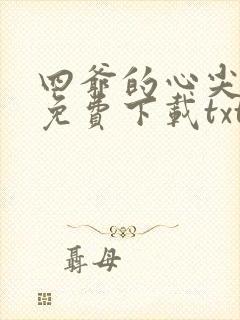 四爷的心尖
免費下載txt
聶母